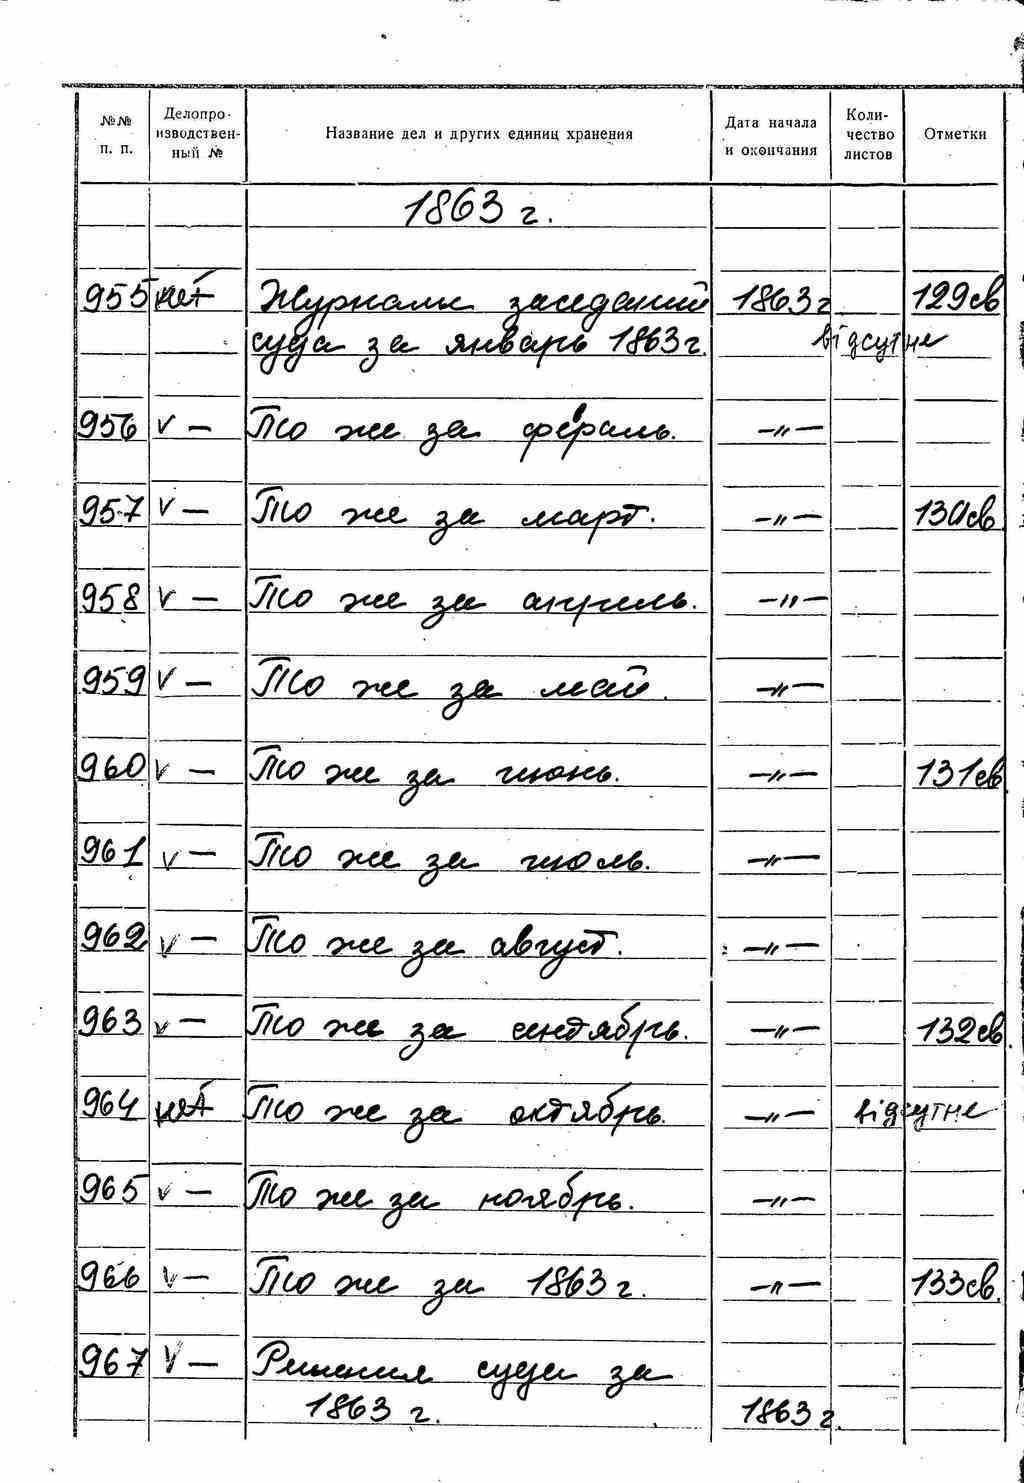 №№ п. п. Делопроизводствен-ный № Название дел и других единиц хранения Дата начала и окончания Коли-чество листов Отметки
1863 г.
955 нет Журналы заседаний 1863 г 129 св
суда за январь 1863 г. відсутне
956 v — То же за февраль. —"—
957 v — То же за март. —"— 130 св
958 v — То же за апрель. —"—
959 v — То же за май. —"—
960 v — То же за июнь. —"— 131 св
961 v — То же за июль. —"—
962 v — То же за август. —"—
963 v — То же за сентябрь. —"— 132 св
964 нет То же за октябрь. —"— відсутне
965 v — То же за ноябрь. —"—
966 v — То же за 1863 г. —"— 133 св.
967 v — Решения суда за
1863 г. 1863 г.